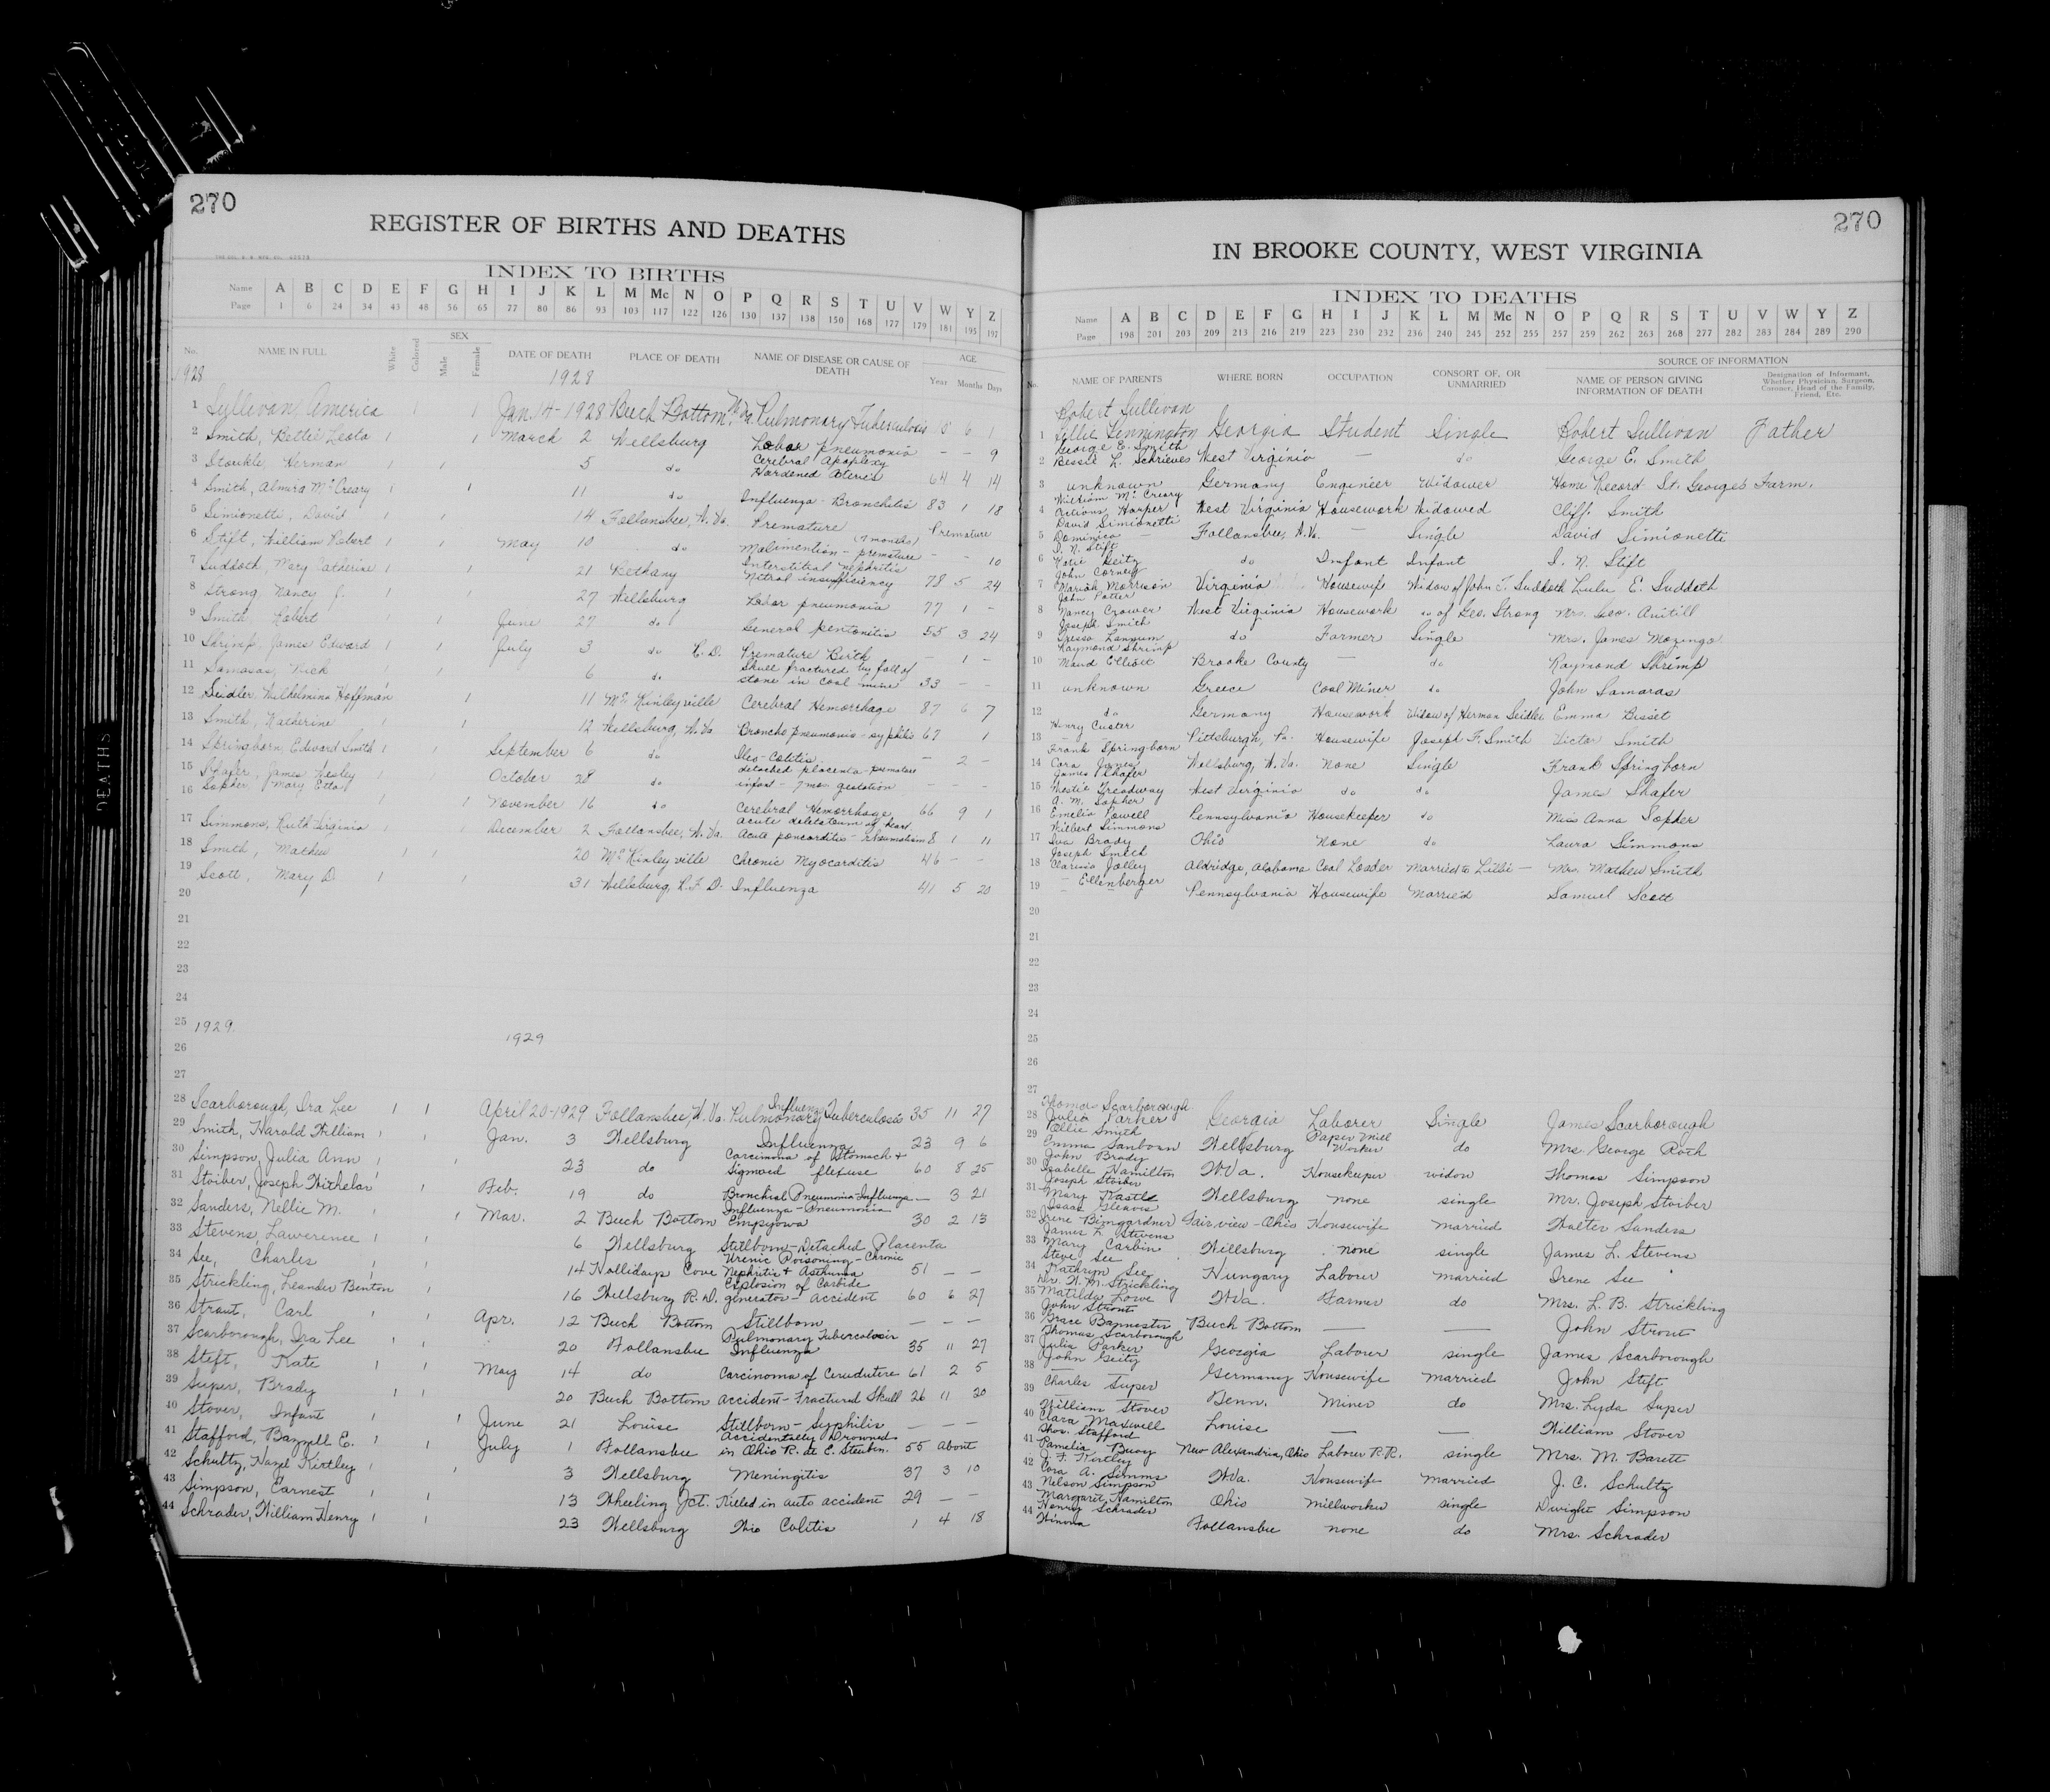 270
REGISTER OF BIRTHS AND DEATHS
INDEX TO BIRTHS
Name A B C D E F G H I J K L M Mc N O P Q R S T U V W Y Z
Page 1 6 24 34 43 48 56 65 77 80 86 93 103 117 122 126 130 137 138 150 168 177 179 181 195 197
No. NAME IN FULL White Colored SEX Male Female DATE OF DEATH PLACE OF DEATH NAME OF DISEASE OR CAUSE OF DEATH AGE Year Months Days
1928 1928
1 Sullivan, America 1 1 Jan. 14-1928 Beech Bottom, W. Va. Pulmonary Tuberculosis 6
2 Smith, Bettie Leota 1 1 March 2 Wellsburg Lobar pneumonia — — 9
3 Stoekle, Herman 1 1 5 do Cerebral Apoplexy Hardened Arteries 64 4 14
4 Smith, Almira McCreary 1 1 11 do Influenza - Bronchitis 83 1 18
5 Simionette, David 1 1 14 Follansbee, W. Va. Premature Premature
6 Stift, William Robert 1 1 May 10 do (7 months) Malimention - premature — — 10
7 Suddoth, Mary Catherine 1 1 21 Bethany Interstitial Nephritis Mitral insufficiency 78 5 24
8 Strong, Nancy J. 1 1 27 Wellsburg Lobar pneumonia 77 1 —
9 Smith, Robert 1 1 June 27 do General peritonitis 55 3 24
10 Shrimp, James Edward 1 1 July 3 do R. D. Premature Birth — 1 —
11 Samaras, Nick 1 1 6 do Skull fractured by fall of stone in coal mine 33 — —
12 Seidler, Wilhelmina Hoffman 1 11 McKinleyville Cerebral Hemorrhage 87 6 7
13 Smith, Katherine 1 1 12 Wellsburg, W. Va. Broncho pneumonia - syphilis 67 1
14 Springborn, Edward Smith 1 1 September 6 do Ileo-Colitis — 2 —
15 Shafer, James Wesley 1 1 October 28 do detached placenta - premature infant - 7 mos. gestation — — —
16 Sopher, Mary Etta 1 1 November 16 do Cerebral Hemorrhage 66 9 1
17 Simmons, Ruth Virginia 1 1 December 2 Follansbee, W. Va. Acute dilatation of heart Acute pancarditis - rheumatism 8 1 11
18 Smith, Mathew 1 1 20 McKinleyville Chronic Myocarditis 46 — —
19 Scott, Mary D. 1 1 31 Wellsburg, R.F.D. Influenza 41 5 20
20
21
22
23
24
25 1929
26 1929
27
28 Scarborough, Ira Lee 1 1 April 20-1929 Follansbee, W. Va. Influenza Pulmonary Tuberculosis 35 11 27
29 Smith, Harold William 1 1 Jan. 3 Wellsburg Influenza 23 9 6
30 Simpson, Julia Ann 1 1 23 do Carcinoma of Stomach + Sigmoid flexuse 60 8 25
31 Stoiber, Joseph Nicholas 1 1 Feb. 19 do Bronchial Pneumonia-Influenza — 3 21
32 Sanders, Nellie M. 1 Mar. 2 Beech Bottom Influenza - Pneumonia Empyowa 30 2 13
33 Stevens, Lawerence 1 1 6 Wellsburg Stillborn - Detached Placenta
34 See, Charles 1 1 14 Hollidays Cove Uremic Poisoning - Chronic Nephritis + Asthuma 51 — —
35 Strickling, Leander Benton 1 16 Wellsburg R. D. Explosion of Carbide generator - accident 60 6 27
36 Strout, Carl 1 1 Apr. 12 Beech Bottom Stillborn — — —
37 Scarborough, Ira Lee 1 1 20 Follansbee Pulmonary Tubercolosis Influenza 35 11 27
38 Steft, Kate 1 1 May 14 do Carcinoma of 61 2 5
39 Super, Brady 1 1 20 Beech Bottom accident - Fractured Skull 26 11 20
40 Stover, Infant 1 1 June 21 Louise Stillborn - Syphilis — — —
41 Stafford, Bazzell E. 1 1 July 1 Follansbee Accidentally Drowned in Ohio R. at E. Steuben. 55 about
42 Schultz, Hazel Kirtley 1 1 3 Wellsburg Meningitis 37 3 10
43 Simpson, Earnest 1 1 13 Wheeling Jct. Killed in auto accident 29 — —
44 Schrader, William Henry 1 1 23 Wellsburg Ilio Colitis 1 4 18
DEATHS
270
IN BROOKE COUNTY, WEST VIRGINIA
INDEX TO DEATHS
Name A B C D E F G H I J K L M Mc N O P Q R S T U V W Y Z
Page 198 201 203 209 213 216 219 223 230 232 236 240 245 252 255 257 259 262 263 268 277 282 283 284 289 290
No. NAME OF PARENTS WHERE BORN OCCUPATION CONSORT OF, OR UNMARRIED SOURCE OF INFORMATION NAME OF PERSON GIVING INFORMATION OF DEATH Designation of Informant, Whether Physician, Surgeon, Coroner, Head of the Family, Friend, Etc.
Robert Sullivan
1 Lillie Pennington Georgia Student Single Robert Sullivan Father
George E. Smith
2 Bessie L. Schrieves West Virginia — do George E. Smith
3 unknown Germany Engineer Widower Home Record St. George's Farm.
William McCreary
4 Harper West Virginia Housework Widowed Cliff. Smith
David Simionetti
5 Dominica — Follansbee, W. Va. — Single David Simionette
S. N. Stift
6 Katie Geitz do Infant Infant S. N. Stift
John Corney
7 Mariah Morrison Virginia Housewife Widow of John T. Suddoth Lulu E. Suddeth
John Potter
8 Nancy Crower West Virginia Housework do of Geo. Strong Mrs. Geo. Anitill
Joseph Smith
9 Tressa Langum do Farmer Single Mrs. James Mozingo
Raymond Shrimp
10 Maud Elliott Brooke County — do Raymond Shrimp
11 unknown Greece Coal Miner do John Samaras
12 do Germany Housework Widow of Herman Seidler Emma Bisset
Henry Custer
13 — Pittsburgh, Pa. Housewife Joseph F. Smith Victor Smith
Frank Springborn
14 Cora James Wellsburg, W. Va. None Single Frank Springborn
James Shafer
15 Mestie Treadway West Virginia do do James Shafer
A. M. Sopher
16 Emelia Powell Pennsylvania Housekeeper do Miss Anna Sopher
Wilbert Simmons
17 Iva Brady Ohio None do Laura Simmons
Joseph Smith
18 Clarissa Jolley Aldridge, Alabama Coal Loader Married to Lilli — Mrs. Mathew Smith
— Ellenberger
19 — Pennsylvania Housewife Married Samuel Scott
20
21
22
23
24
25
26
27
Thomas Scarborough
28 Julia Parker Georgia Laborer Single James Scarborough
Ollie Smith
29 Emma Sanborn Wellsburg Paper Mill Worker do Mrs. George Roth
John Brady
30 Isabelle Hamilton W Va. Housekeeper widow Thomas Simpson
Joseph Stoiber
31 Mary Kastle Wellsburg none single Mr. Joseph Stoiber
Isaac Glenois
32 Irene Bimgardner Fairview - Ohio Housewife married Walter Sanders
James L. Stevens
33 Mary Carbin Wellsburg none single James L. Stevens
Steve See
34 Kathryn See Hungary Laborer married Irene See
Dr. W. M. Strickling
35 Matilda Lowe W Va. Farmer do Mrs. L. B. Strickling
John Strout
36 Grace Bannester Beech Bottom — — John Strout
Thomas Scarborough
37 Julia Parker Georgia Laborer single James Scarborough
John Geity
38 — Germany Housewife married John Stift
39 Charles Super Tenn. Miner do Mrs. Lyda Super
William Stover
40 Clara Maxwell Louise — — William Stover
Thos. Stafford
41 Pamelia Buoy New Alexandria, Ohio Laborer R.R. single Mrs. M. Barett
J. F. Kirtley
42 Cora A. Simms W Va. Housewife married J. C. Schultz
Nelson Simpson
43 Margaret Hamilton Ohio Millworker single Dwight Simpson
Henry Schrader
44 Winona Follansbee none do Mrs. Schrader